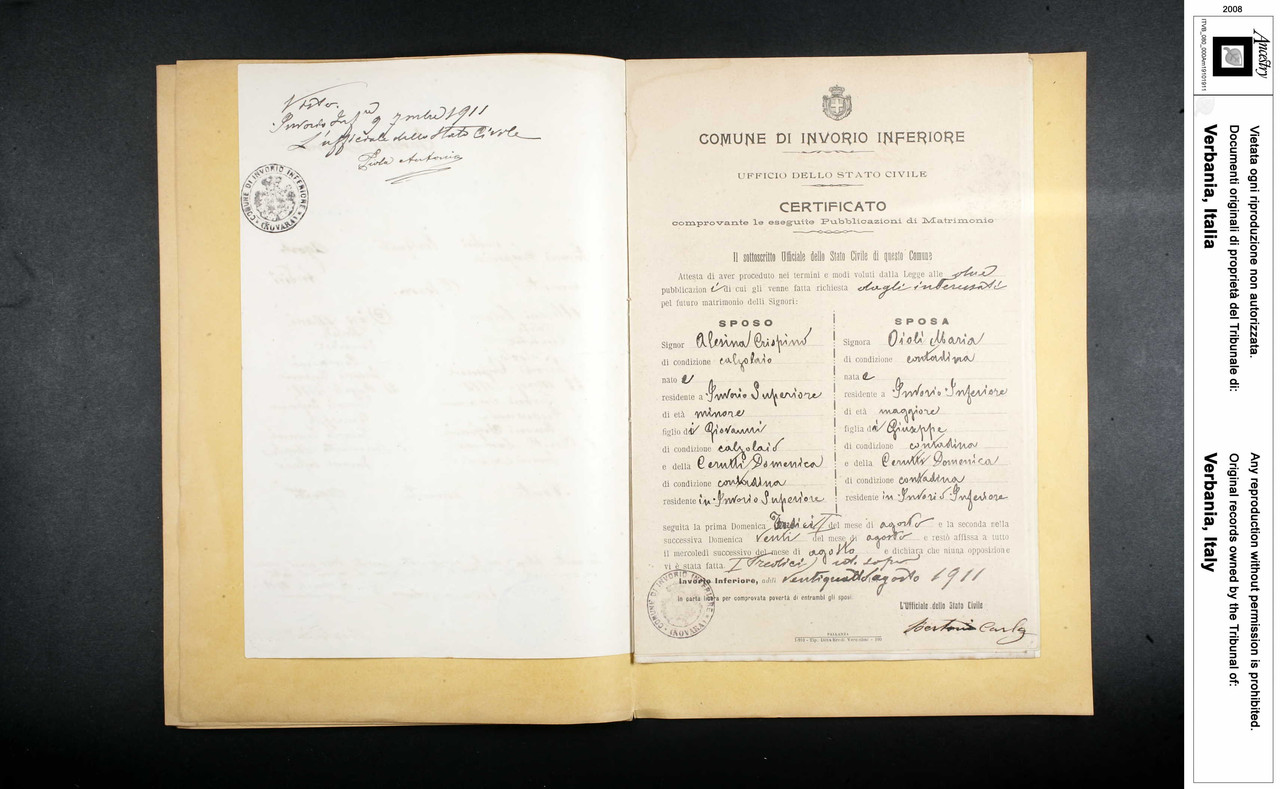 Visto.
Invorio Inf.re 9 7mbre 1911
L'ufficiale dello Stato Civile
Antonio
COMUNE DI INVORIO INFERIORE
(NOVARA)
COMUNE DI INVORIO INFERIORE
UFFICIO DELLO STATO CIVILE
CERTIFICATO
comprovante le eseguite Pubblicazioni di Matrimonio
Il sottoscritto Ufficiale dello Stato Civile di questo Comune
Attesta di aver proceduto nei termini e modi voluti dalla Legge alle due
pubblicazioni di cui gli venne fatta richiesta dagli interessati
pel futuro matrimonio delli Signori:
SPOSO
Signor Alesina Crispino
di condizione calzolaio
nato e
residente a Invorio Superiore
di età minore
figlio di Giovanni
di condizione calzolaio
e della Cerutti Domenica
di condizione contadina
residente in Invorio Superiore
SPOSA
Signora Oioli Maria
di condizione contadina
nata e
residente a Invorio Inferiore
di età maggiore
figlia di Giuseppe
di condizione contadina
e della Cerutti Domenica
di condizione contadina
residente in Invorio Inferiore
seguita la prima Domenica del mese di agosto e la seconda nella
successiva Domenica venti del mese di agosto e restò affissa a tutto
il mercoledì successivo del mese di agosto e dichiara che niuna opposizione
vi è stata fatta. I Tredici) id. sopra
Invorio Inferiore, addì ventiquattro agosto 1911
in carta libera per comprovata povertà di entrambi gli sposi.
COMUNE DI INVORIO INFERIORE
(NOVARA)
L'Ufficiale dello Stato Civile
Carlo
PALLANZA
2008
Ancestry
ITVB_080_000Am19101911
Vietata ogni riproduzione non autorizzata.
Documenti originali di proprietà del Tribunale di:
Verbania, Italia
Any reproduction without permission is prohibited.
Original records owned by the Tribunal of:
Verbania, Italy